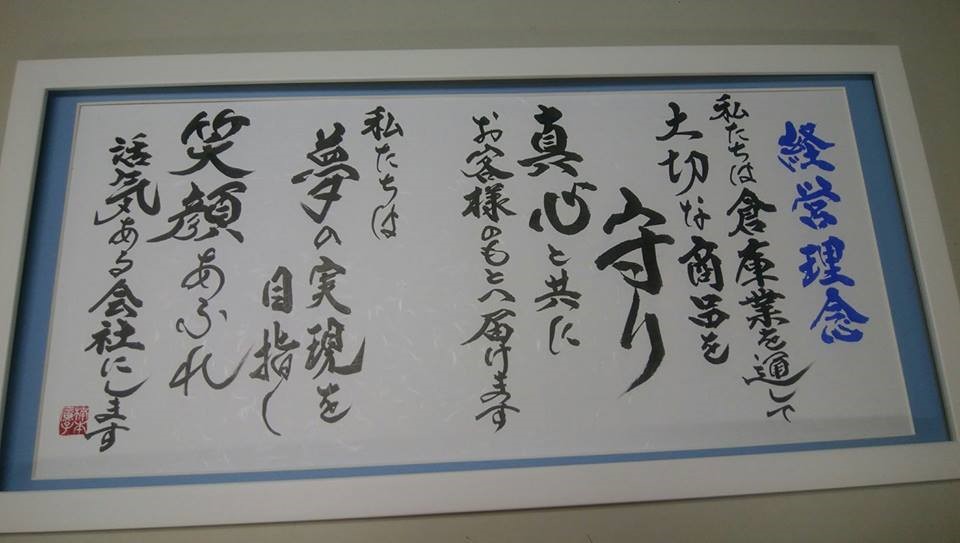 経営理念
私たちは倉庫業を通して
大切な商品を
守り
真心と共に
お客様のもとへ届けます
私たちは
夢の実現を
目指し
笑顔あふれ
活気ある会社にします